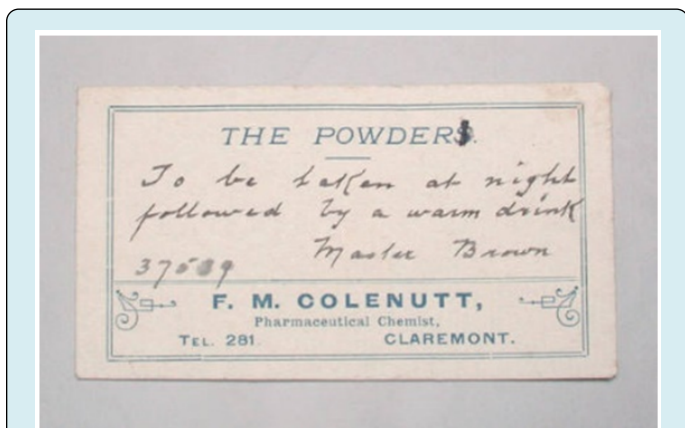 THE POWDER.
To be taken at night
followed by a warm drink
Master Brown
F. M. COLENUTT,
Pharmaceutical Chemist,
TEL. 281 CLAREMONT.